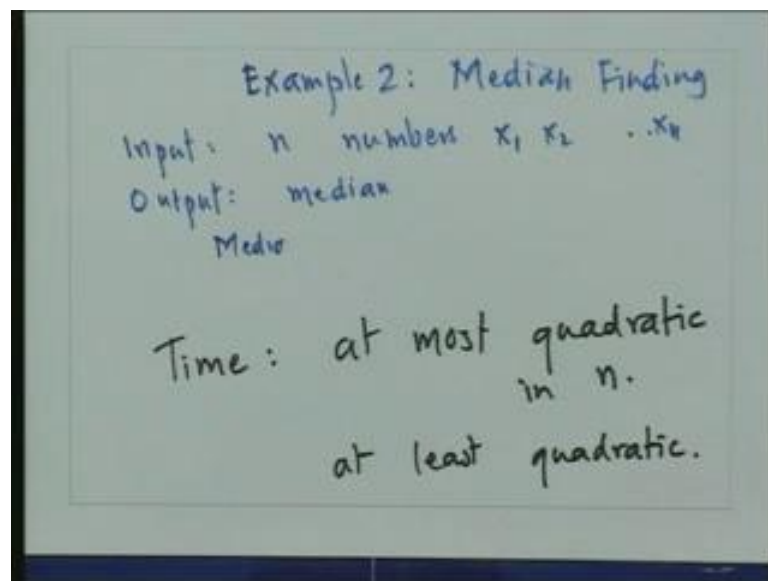 Example 2: Median Finding
Input: n numbers x₁ x₂ ..xₙ
Output: median
Medio
Time: at most quadratic
in n.
at least quadratic.